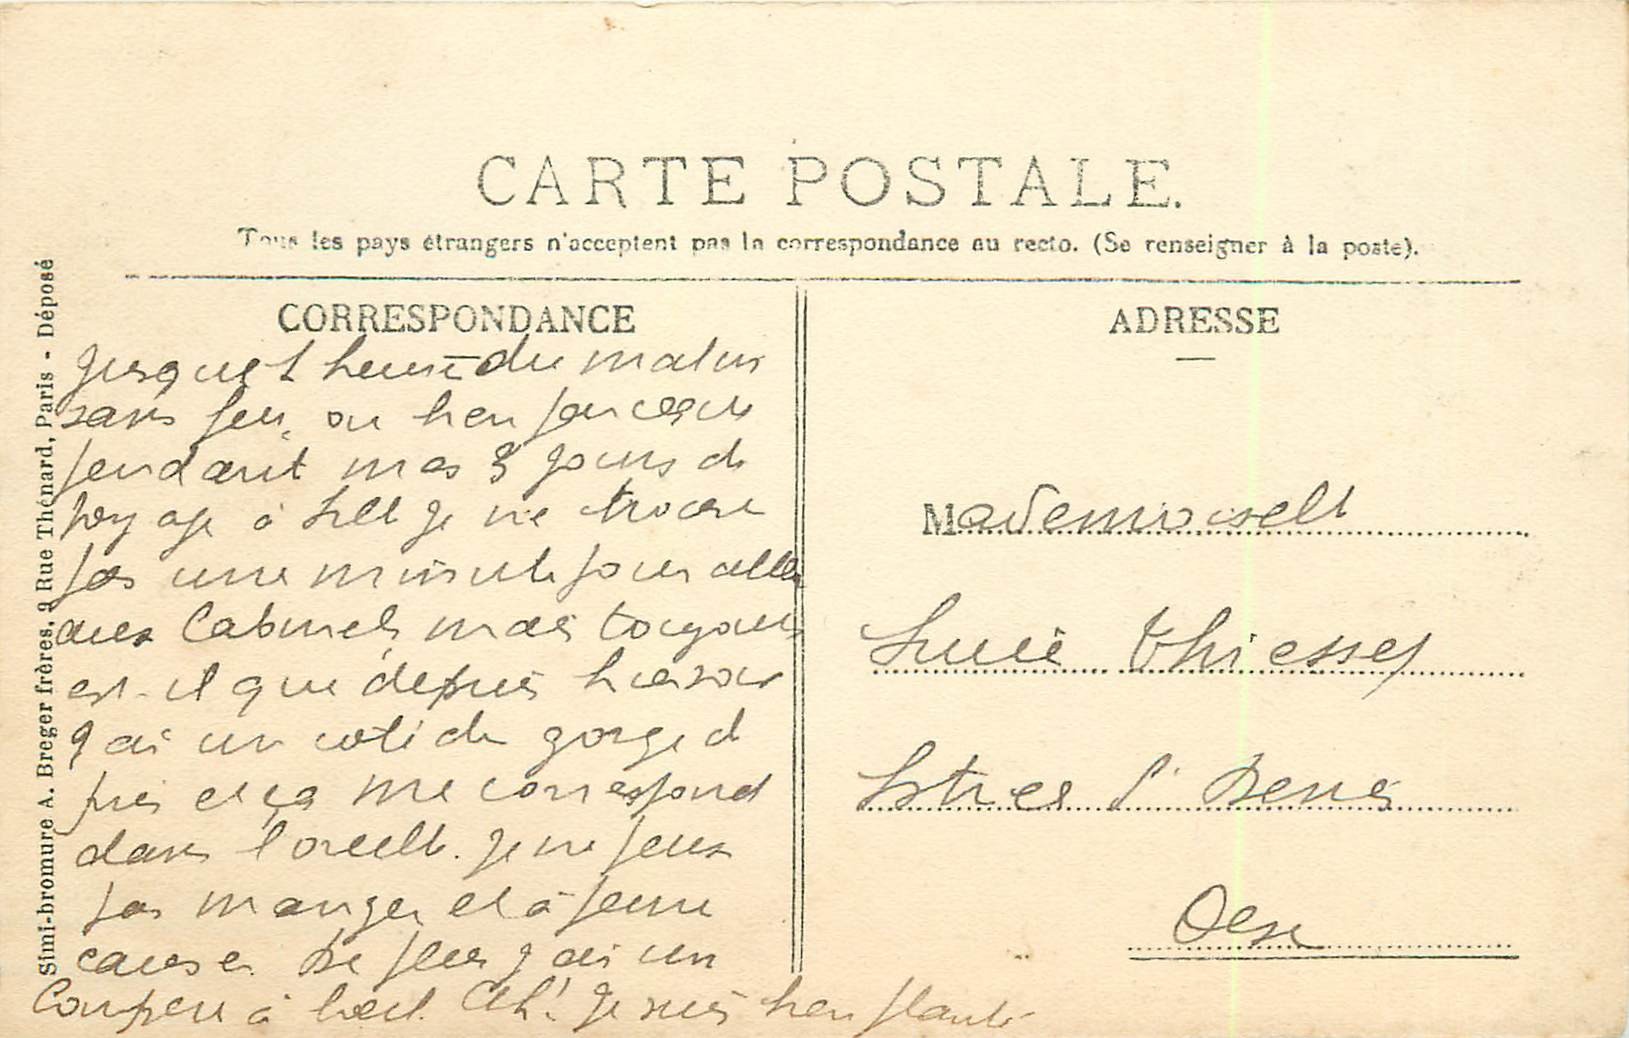 CARTE POSTALE.
Tous les pays étrangers n'acceptent pas la correspondance au recto. (Se renseigner à la poste).
CORRESPONDANCE
Jusqu'à 1 heure du matin
sans feu, ou bien
pendant mes 3 jours de
voyage à je ne trouve
pas une minute pour aller
aux Cabinets, mais toujours
est-il que depuis hier soir
j'ai un coté de gorge d
pris et ça me correspond
dans l'oreille. je ne peux
pas manger et à peine
causer. De plus j'ai un
à l'oeil. Ah! Je suis bien planté
ADRESSE
Mademoiselle
Lucie Thiessey
St Denis
Oise
Simi-bromure A. Breger frères, 9 Rue Thénard, Paris - Déposé